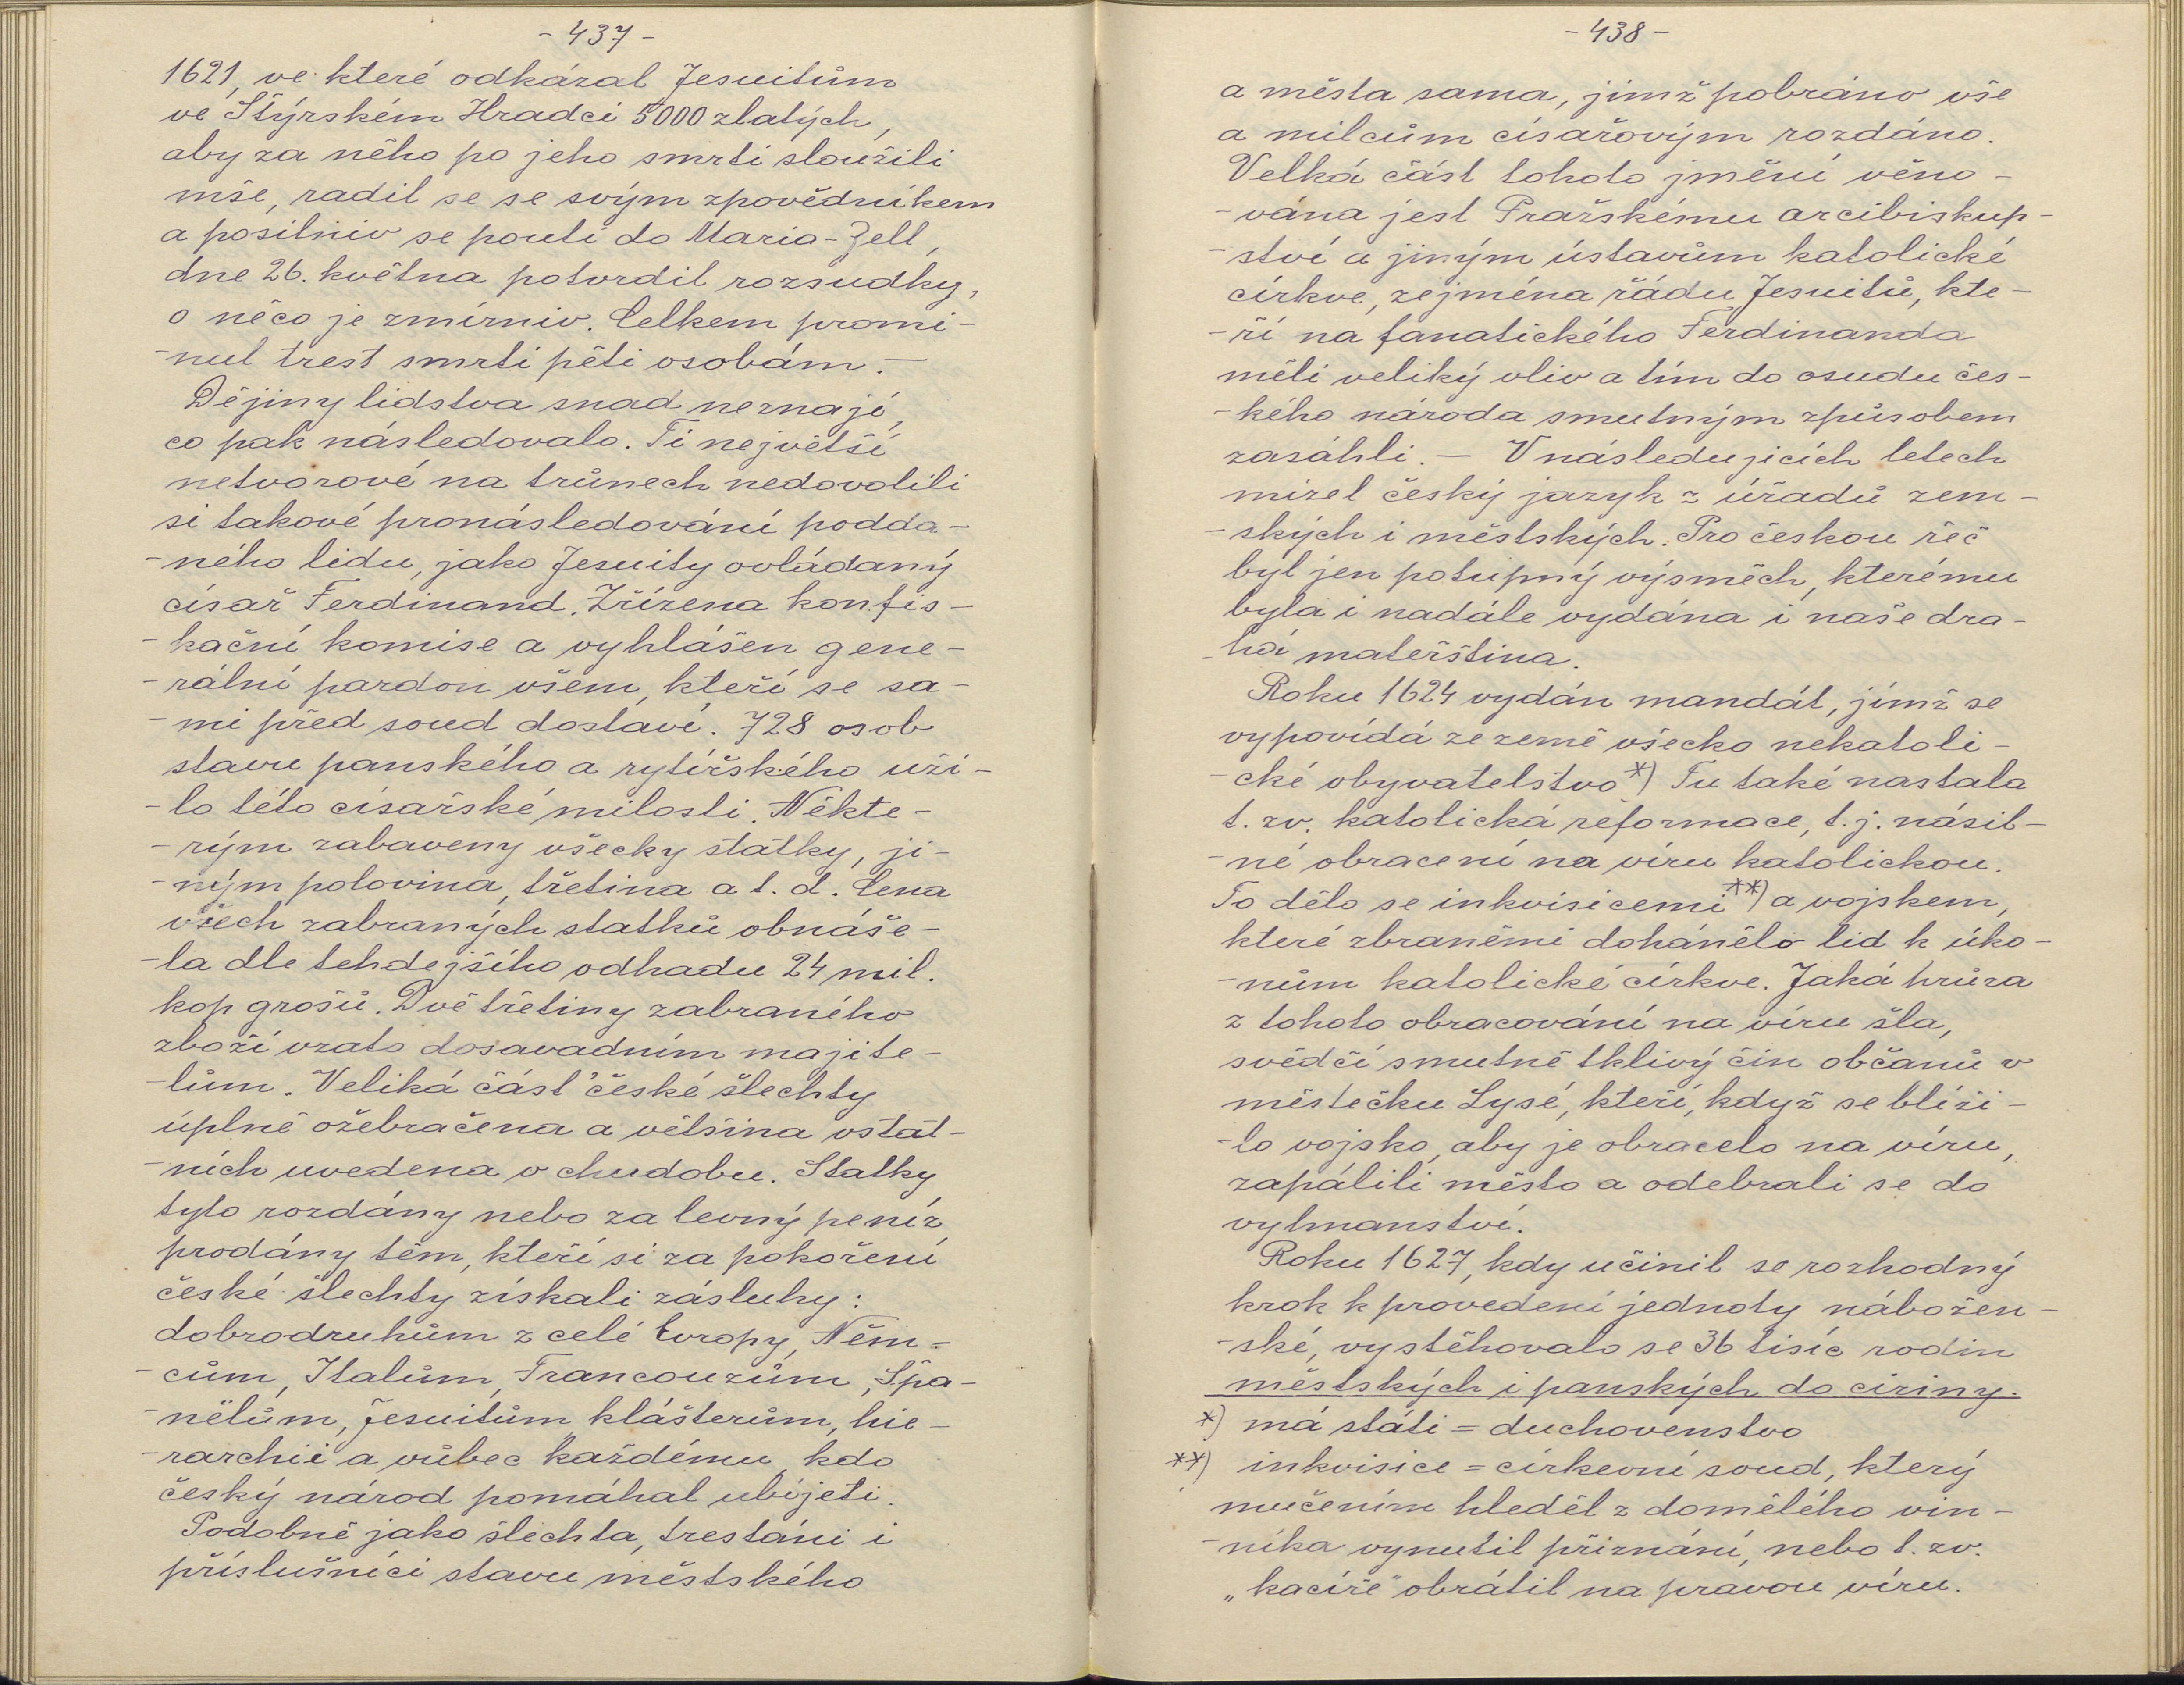 - 437 -
1621, ve které odkázal Jesuitům
ve Štýrském Hradci 5000 zlatých,
aby za něho po jeho smrti sloužili
mše, radil se se svým zpovědníkem
a posilniv se poutí do Maria-Zell,
dne 26. května potvrdil rozsudky,
o něco je zmírniv. Celkem promi-
-nul trest smrti pěti osobám. —
Dějiny lidstva snad neznají,
co pak následovalo. Ti největší
netvorové na trůnech nedovolili
si takové pronásledování podda-
-ného lidu, jako Jesuity ovládaný
císař Ferdinand. Zřízena konfis-
-kační komise a vyhlášen gene-
-rální pardon všem, kteří se sa-
-mi před soud dostaví. 728 osob
stavu panského a rytířského uži-
-lo této císařské milosti. Někte-
-rým zabaveny všecky statky, ji-
-ným polovina, třetina a t. d. Cena
všech zabraných statků obnáše-
-la dle tehdejšího odhadu 24 mil.
kop grošů. Dvě třetiny zabraného
zboží vzato dosavadním majite-
-lům. Veliká část' české šlechty
úplně ožebračena a většina ostat-
-ních uvedena v chudobu. Statky
tyto rozdány nebo za levný peníz
prodány těm, kteří si za pokoření
české šlechty získali zásluhy:
dobrodruhům z celé Evropy, Něm-
-cům, Italům, Francouzům, Špa-
-nělům, Jesuitům, klášterům, hie-
-rarchii a vůbec každému, kdo
český národ pomáhal ubíjeti.
Podobně jako šlechta, trestáni i
příslušníci stavu městského
- 438 -
a města sama, jimž pobráno vše
a milcům císařovým rozdáno.
Velká část tohoto jmění věno-
-vána jest Pražskému arcibiskup-
-ství a jiným ústavům katolické
církve, zejména řádu Jesuitů, kte-
-ří na fanatického Ferdinanda
měli veliký vliv a tím do osudu čes-
-kého národa smutným způsobem
zasáhli. — V následujících letech
mizel český jazyk z úřadů zem-
-ských i městských. Pro českou řeč
byl jen potupný výsměch, kterému
byla i nadále vydána i naše dra-
-há mateřština.
Roku 1624 vydán mandát, jímž se
vypovídá ze země všecko nekatoli-
-cké obyvatelstvo*) Tu také nastala
t. zv. katolická reformace, t. j. násil-
-né obracení na víru katolickou.
To dělo se inkvisicemi**) a vojskem,
které zbraněmi dohánělo lid k úko-
-nům katolické církve. Jaká hrůza
z tohoto obracování na víru šla,
svědčí smutně tklivý čin občanů v
městečku Lysé, kteří, když se blíži-
-lo vojsko, aby je obracelo na víru,
zapálili město a odebrali se do
vyhnanství.
Roku 1627, kdy učinil se rozhodný
krok k provedení jednoty nábožen-
-ské, vystěhovalo se 36 tisíc rodin
městských i panských do ciziny.
*) má státi = duchovenstvo
**) inkvisice = církevní soud, který
mučením hleděl z domělého vin-
-níka vynutil přiznání, nebo t. zv.
„kacíře" obrátil na pravou víru.